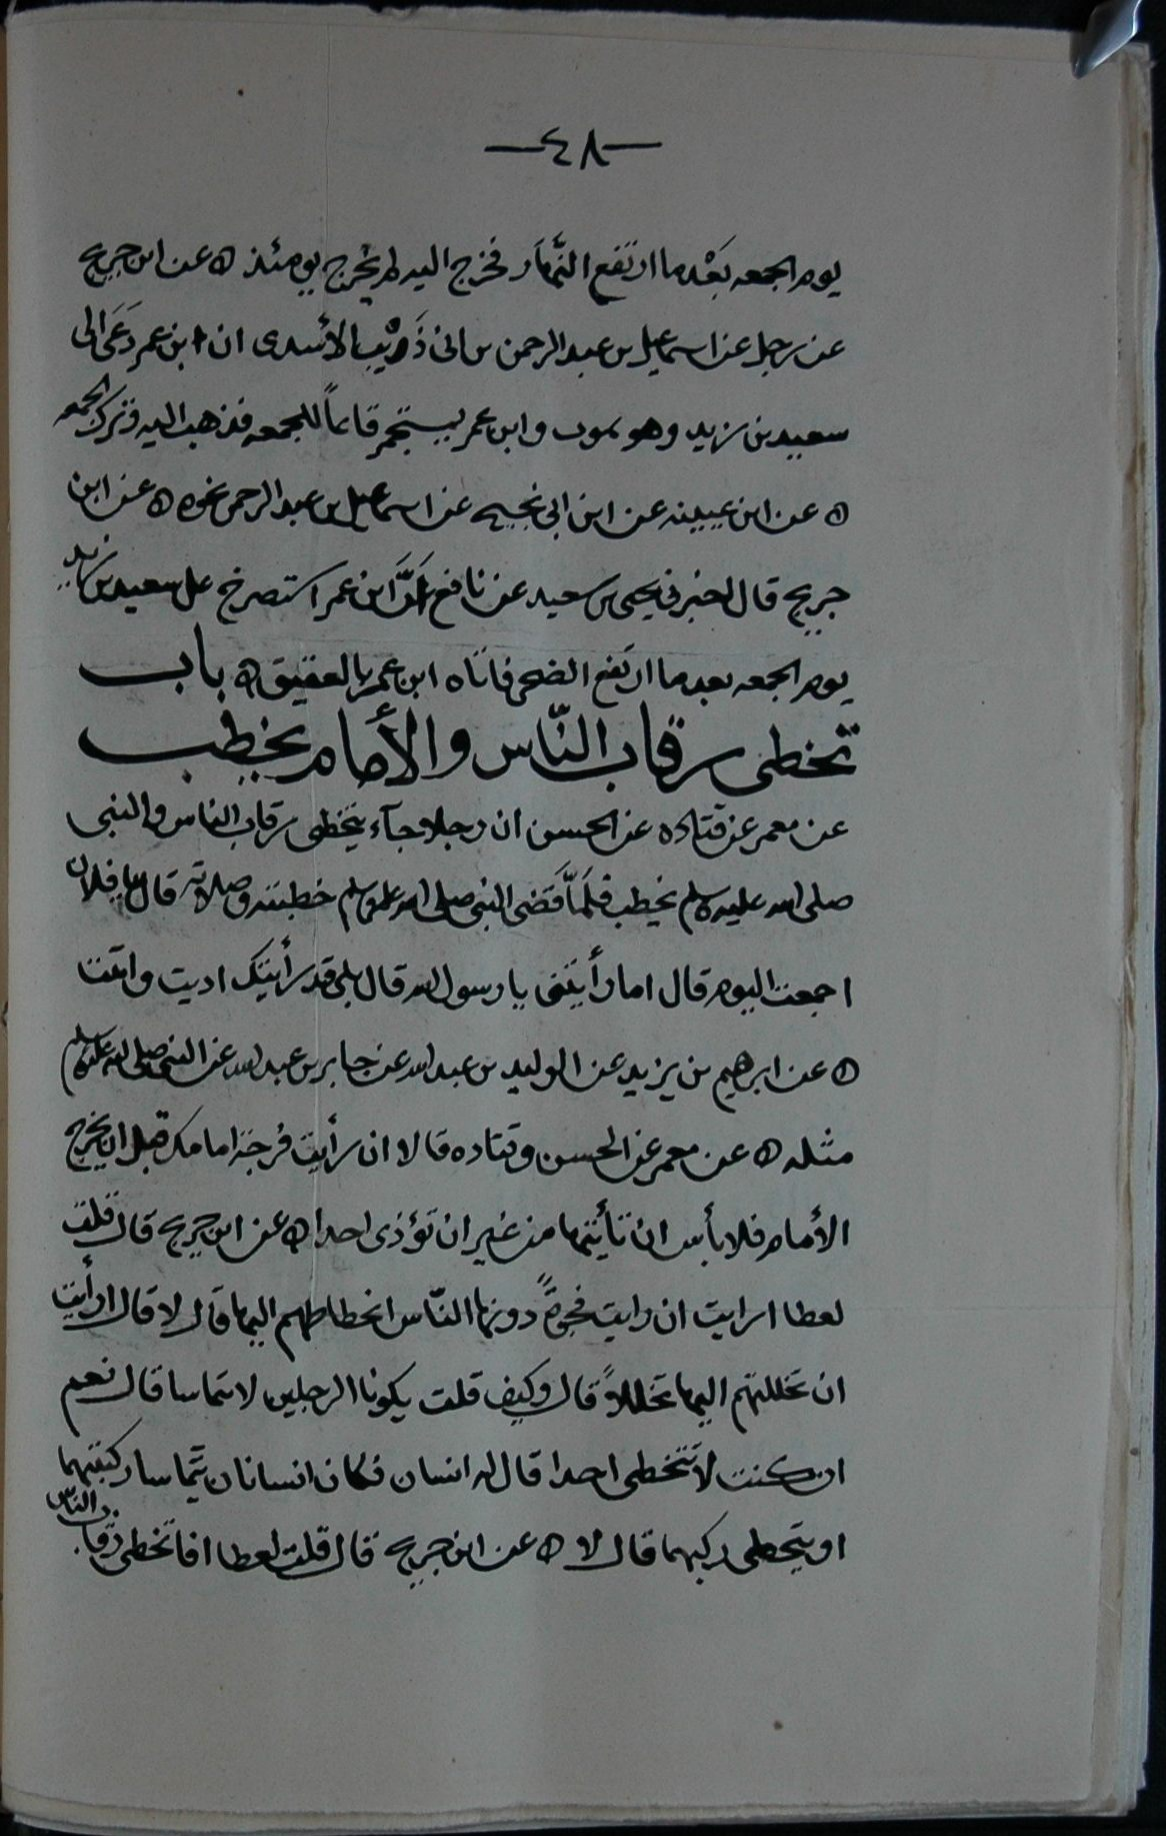 —٤٨—
يوم الجمعه بَعْدما ارتَفع النَّهَار فخرج اليه لم يخرج يومئذ ه عن ابن جريج
عن رجل عن اسماعيل بن عبد الرحمن بن ابى ذَؤيب الأسدى ان ابن عمر دَعَى الى
سعيد بن زيد وهو يموت وابن عمر يستجمر قائماً للجمعه فذهب اليه وترك الجمعه
ه عن ابن عيينه عن ابن ابى نجيح عن اسماعيل بن عبد الرحمن نحوه ه عن ابن
جريج قال اخبرنى يحيى بن سعيد عن نافع أنَّ ابن عمر استصرخ على سعيد بن زيد
يوم الجمعه بعد ما ارتفع الضحى فاتاه ابن عمر بالعقيق ه باب
تخطى رقاب النّاس والأمام يخطب
عن معمر عن قتاده عن الحسن ان رجلا جآء يتخطى رقاب الناس والنبى
صلى الله عليه وسلم يخطب فلمّا قَضى النبى صلى الله عليه وسلم خطبته وصلاته قال يا فلان
اجمعت اليوم قال اما رأيتنى يا رسول الله قال بلى قد رأيتك اديت واتيت
ه عن ابرهيم بن يزيد عن الوليد بن عبد الله عن جابر بن عبد الله عن النبى صلى الله عليه وسلم
مثله ه عن معمر عن الحسن وقتاده قالا ان رأيت فرجة امامك قبل ان يخرج
الأمام فلا بأس ان تأتيها من غير ان تؤذى احدا ه عن ابن جريج قال قلت
لعطا ارايت ان رايت فجوةً دونها النّاس اتخطاهم اليها قال لا قال ارأيت
ان تخللتهم اليها تخللاً قال وكيف قلت يكونا الرجلين لا تماسا قال نعم
ان كنت لا تتخطى احدا قال له انسان فكان انسانان يتَماسا ركبتهما
او يتخطى ركبهما قال لا ه عن ابن جريج قال قلت لعطا افاتخطى رقاب الناس